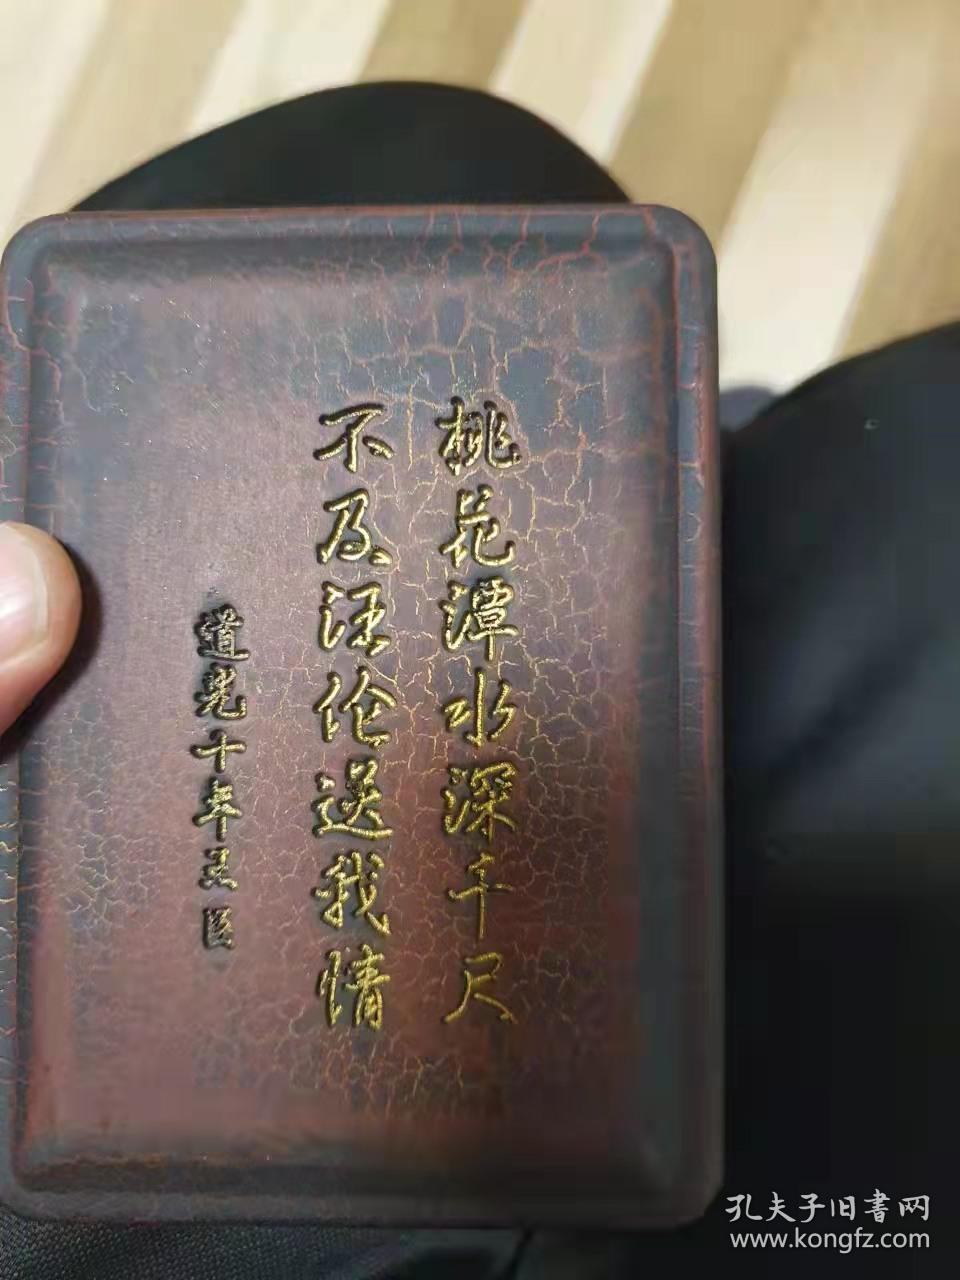 桃花潭水深千尺
不及汪伦送我情
道光十年
孔夫子旧書网
www.kongfz.com